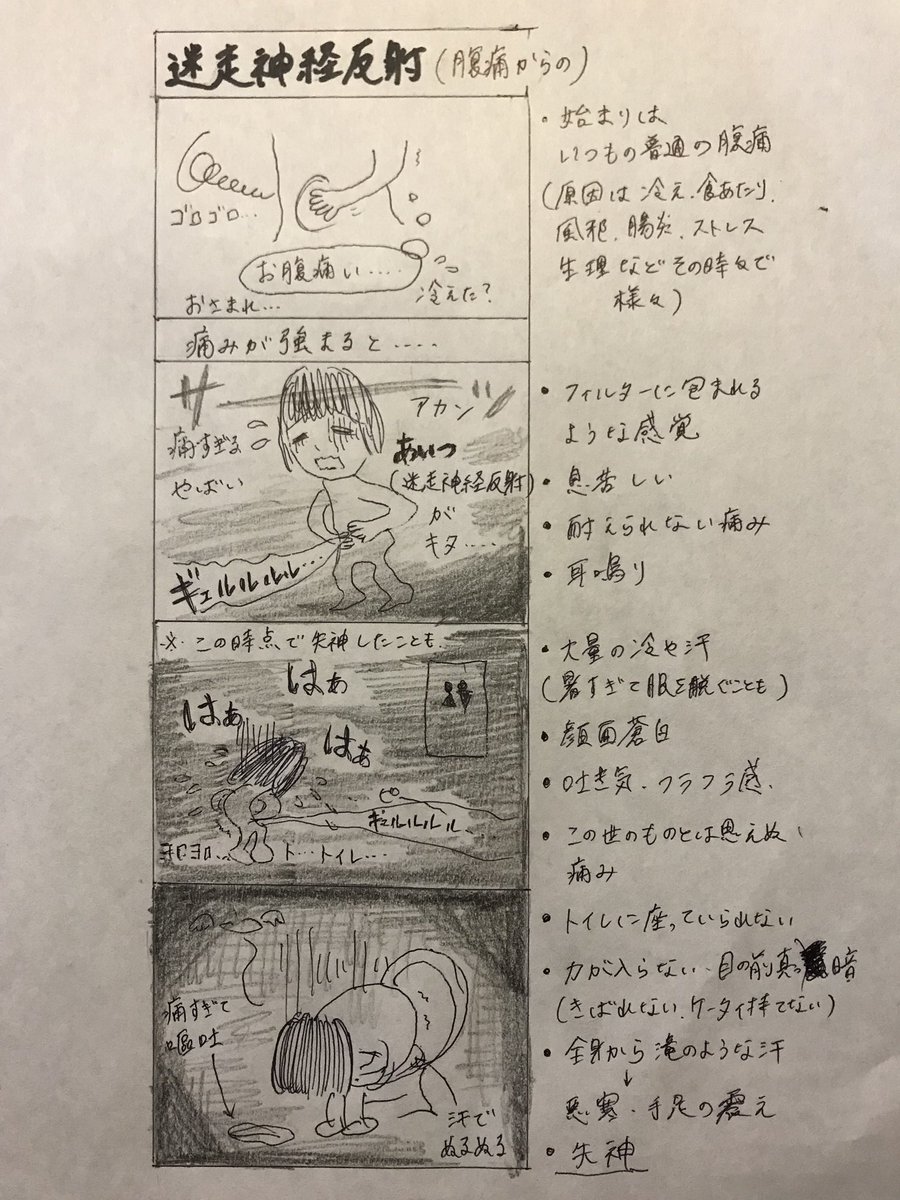 迷走神経反射(腹痛からの)
ゴロゴロ…
お腹痛い‥‥
おさまれ…
冷えた?
・始まりは
いつもの普通の腹痛
(原因は冷え、食あたり、
風邪、腸炎、ストレス
生理などその時々で
様々)
痛みが強まると‥‥
サ ッ
痛すぎる
やばい
アカン
あいつ
(迷走神経反射)
が
キタ‥‥
ギュルルルル…
・フィルターに包まれる
ような感覚
・息苦しい
・耐えられない痛み
・耳鳴り
※この時点で失神したことも
はぁ
はぁ
はぁ
ピー
ギュルルルル‥
ヨロヨロ‥
ト…トイレ…
・大量の冷や汗
(暑すぎて服を脱ぐことも)
・顔面蒼白
・吐き気、フラフラ感、
・この世のものとは思えぬ
痛み
痛すぎて
嘔吐
汗で
ぬるぬる
・トイレに座っていられない
・力が入らない、目の前真っ暗
(きばれない、ケータイ持てない)
・全身から滝のような汗
↓
悪寒・手足の震え
・失神